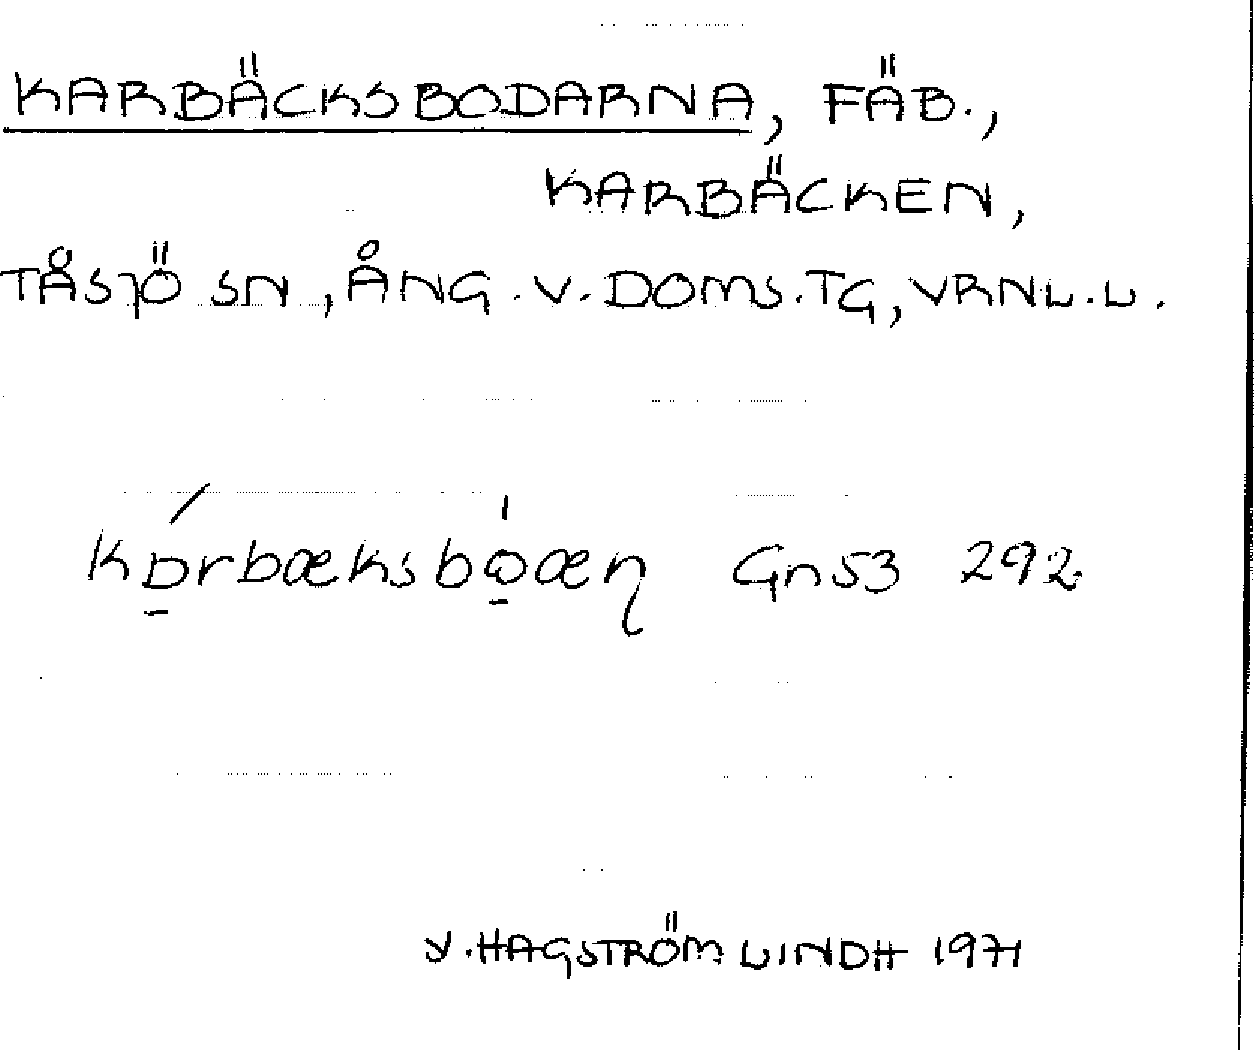 KARBÄCKSBODARNA, FÄB.,
KARBÄCKEN,
TÅSJÖ SN, ÅNG. V. DOMS. TG, VRNL. L.
Gn 53 292
V. HAGSTRÖM LINDH 1971